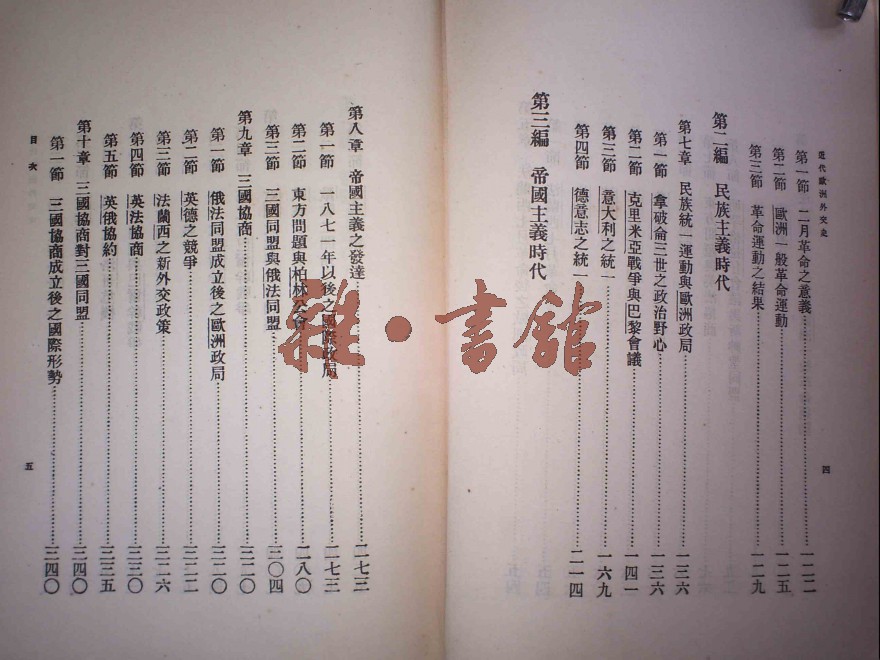 近代歐洲外交史
四
第一節 二月革命之意義 一二二
第二節 歐洲一般革命運動 一二五
第三節 革命運動之結果 一二九
第二編 民族主義時代
第七章 民族統一運動與歐洲政局 一三六
第一節 拿破侖三世之政治野心 一三六
第二節 克里米亞戰爭與巴黎會議 一四一
第三節 意大利之統一 一六九
第四節 德意志之統一 二一四
第三編 帝國主義時代
第八章 帝國主義之發達 二七三
第一節 一八七一年以後之國際政局 二七三
第二節 東方問題與柏林公會 二八〇
第三節 三國同盟與俄法同盟 三〇四
第九章 三國協商 三二〇
第一節 俄法同盟成立後之歐洲政局 三二〇
第二節 英德之競爭 三二二
第三節 法蘭西之新外交政策 三二六
第四節 英法協商 三三〇
第五節 英俄協約 三三五
第十章 三國協商對三國同盟 三四〇
第一節 三國協商成立後之國際形勢 三四〇
目次
五
雜·書館